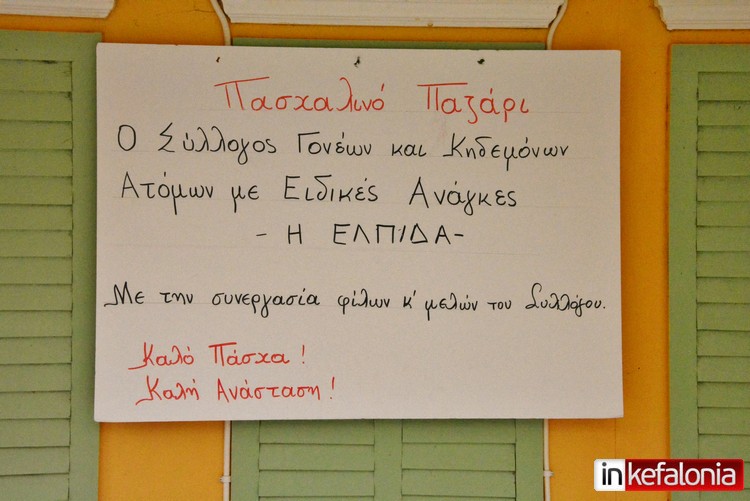 Πασχαλινό Παζάρι
Ο Σύλλογος Γονέων και Κηδεμόνων
Ατόμων με Ειδικές Ανάγκες
- Η ΕΛΠΙΔΑ -
Με την συνεργασία φίλων κ' μελών του Συλλόγου.
Καλό Πάσχα!
Καλή Ανάσταση!
inkefalonia